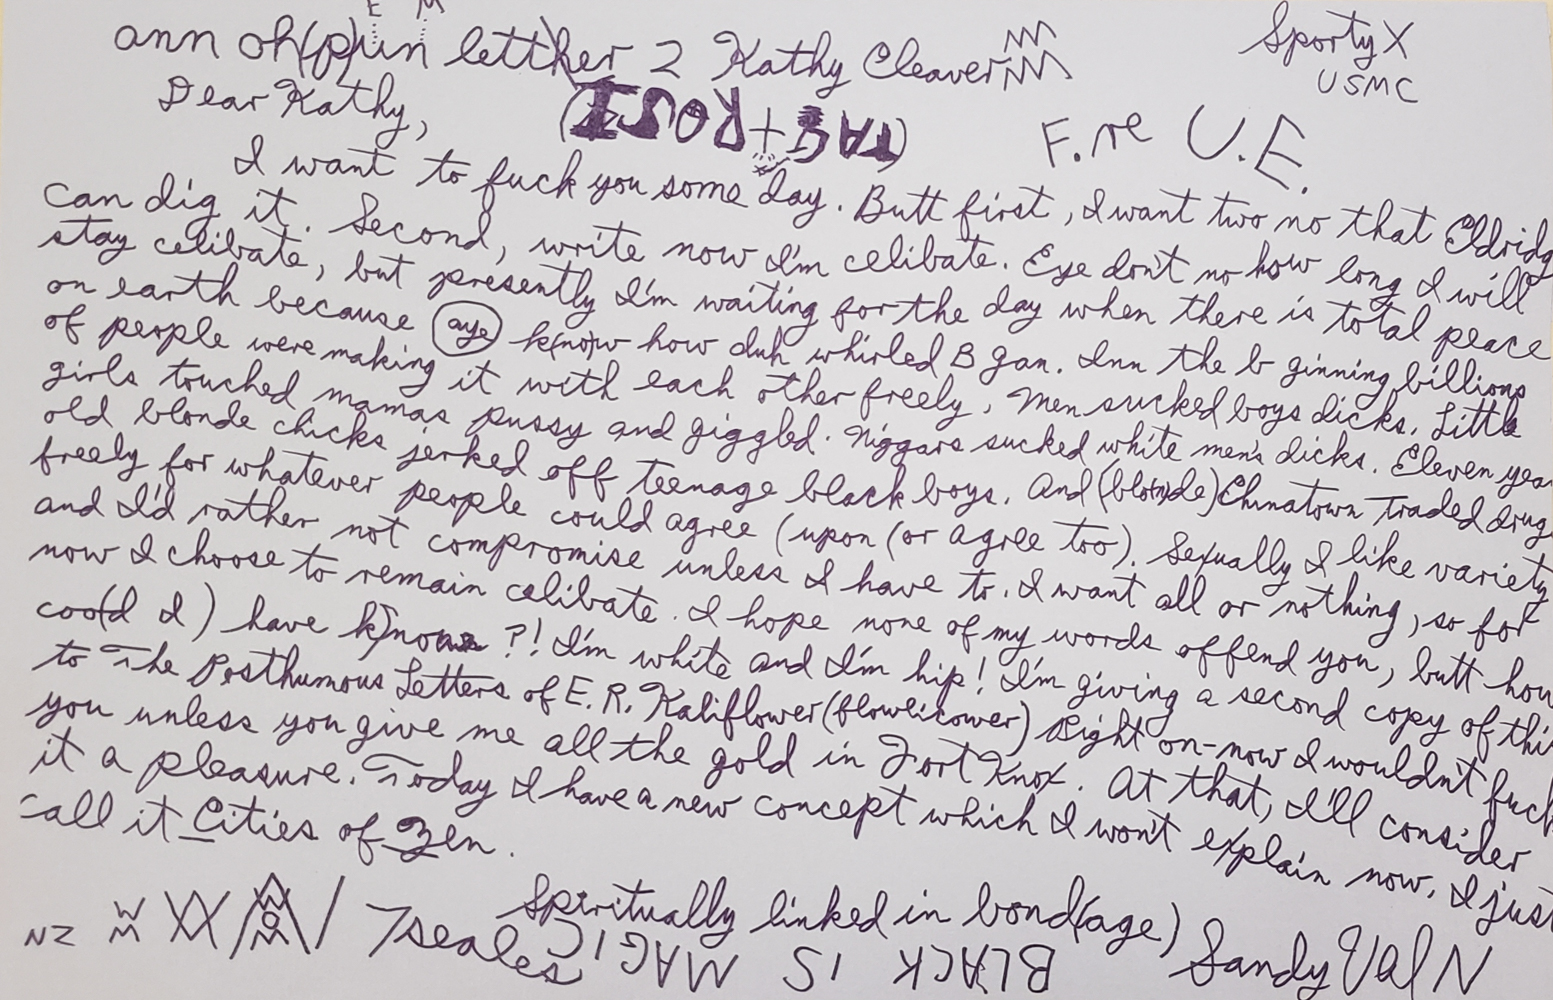 E M
ann oh(p)un letther 2 Kathy Cleaver
Sporty X
USMC
Dear Kathy,
F. re U.E.
I want to fuck you some day. Butt first, I want two no that Eldridg
can dig it. Second, write now I'm celibate. Eye don't no how long I will
stay celibate, but presently I'm waiting for the day when there is total peace
on earth because aye k(no)w how duh whirled B gan. Inn the b ginning billions
of people were making it with each other freely.
And (blonde) Chinatown traded drugs
freely for whatever people could agree (upon (or agree too). Sexually I like variety
and I'd rather not compromise unless I have to. I want all or nothing, so for
now I choose to remain celibate. I hope none of my words offend you, butt how
coo(d I) have k)nown ?! I'm white and I'm hip! I'm giving a second copy of this
to The Posthumous Letters of E.R. Kaliflower (flowlicower) Right on-now I wouldn't fuck
you unless you give me all the gold in Fort Knox. At that, I'll consider
it a pleasure. Today I have a new concept which I won't explain now. I just
call it Cities of Zen.
Spiritually linked in bond(age)
NZ
7 seales
BLACK IS MAGIC
Sandy Val N